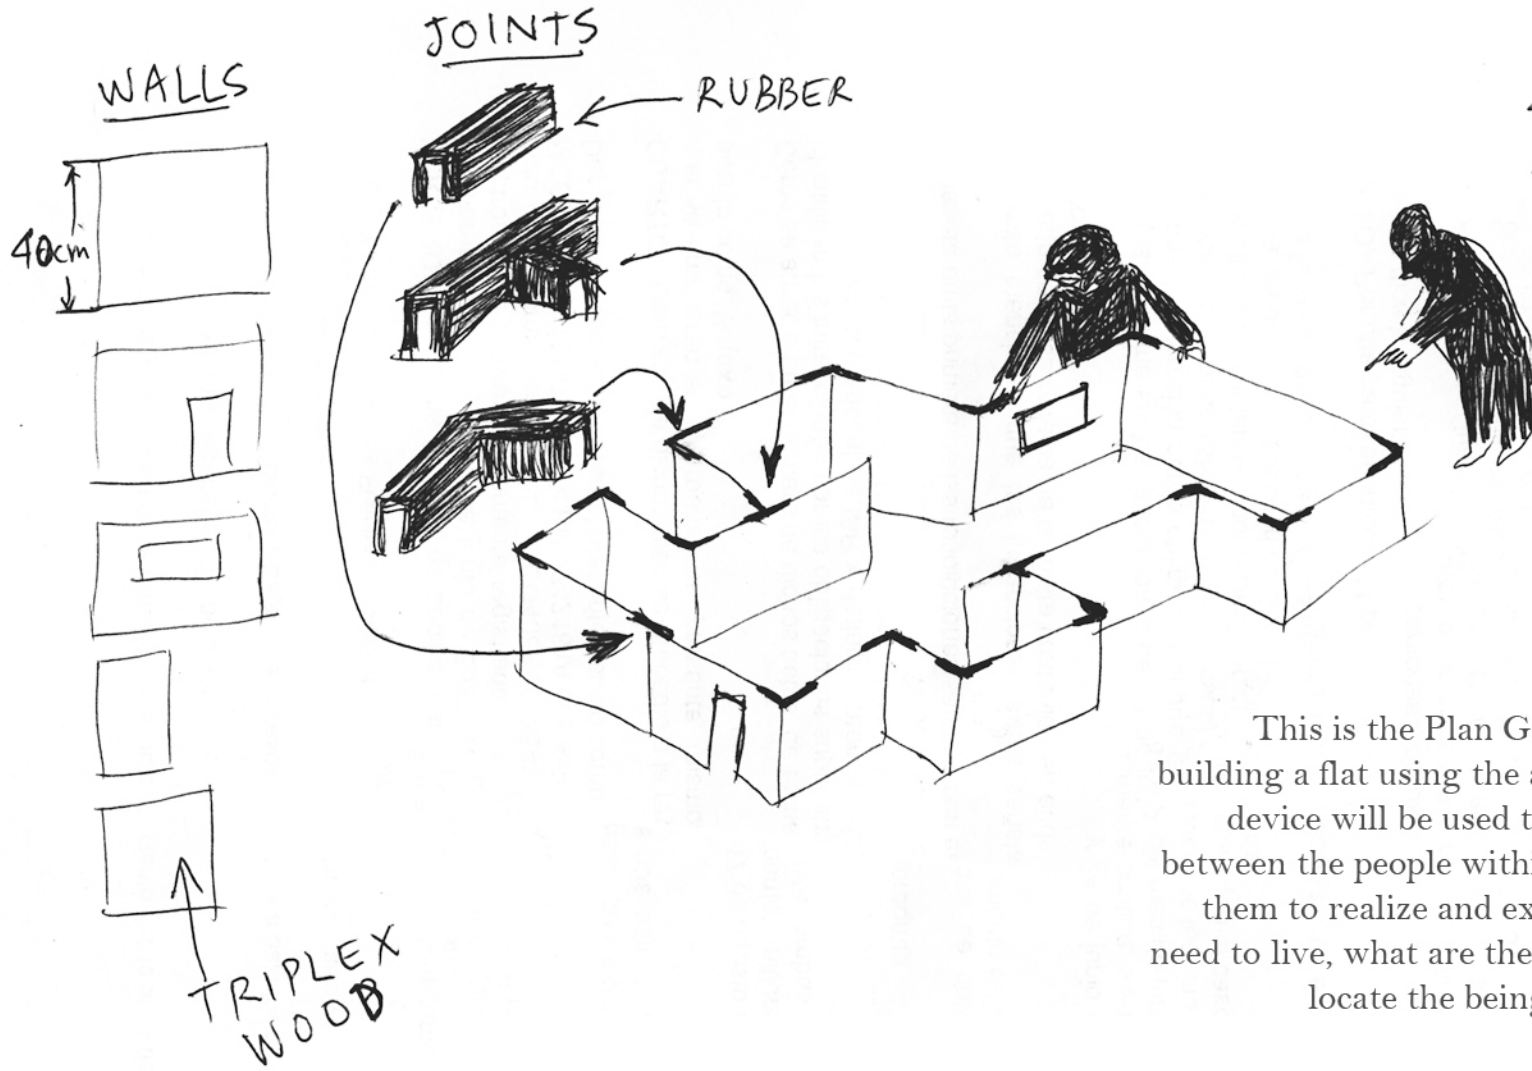 WALLS
JOINTS
RUBBER
40cm
TRIPLEX
WOOD
This is the Plan G
building a flat using the
device will be used
between the people
them to realize and
need to live, what are the
locate the being